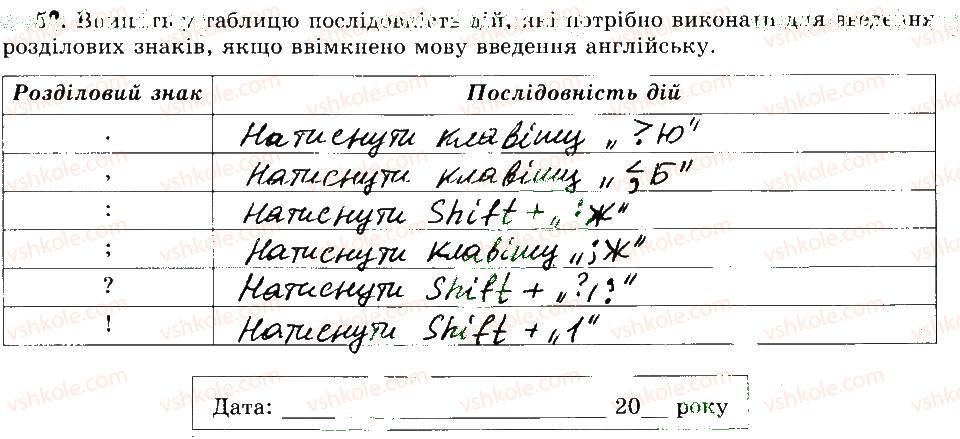 52. Впишіть у таблицю послідовність дій, які потрібно виконати для введення
розділових знаків, якщо ввімкнено мову введення англійську.
Розділовий знак Послідовність дій
. Натиснути клавішу „?Ю"
, Натиснути клавішу „<,Б"
: Натиснути Shift + „:Ж"
; Натиснути клавішу „;Ж"
? Натиснути Shift + „?/"
! Натиснути Shift + „1"
Дата: ____ ____________________ 20__ року